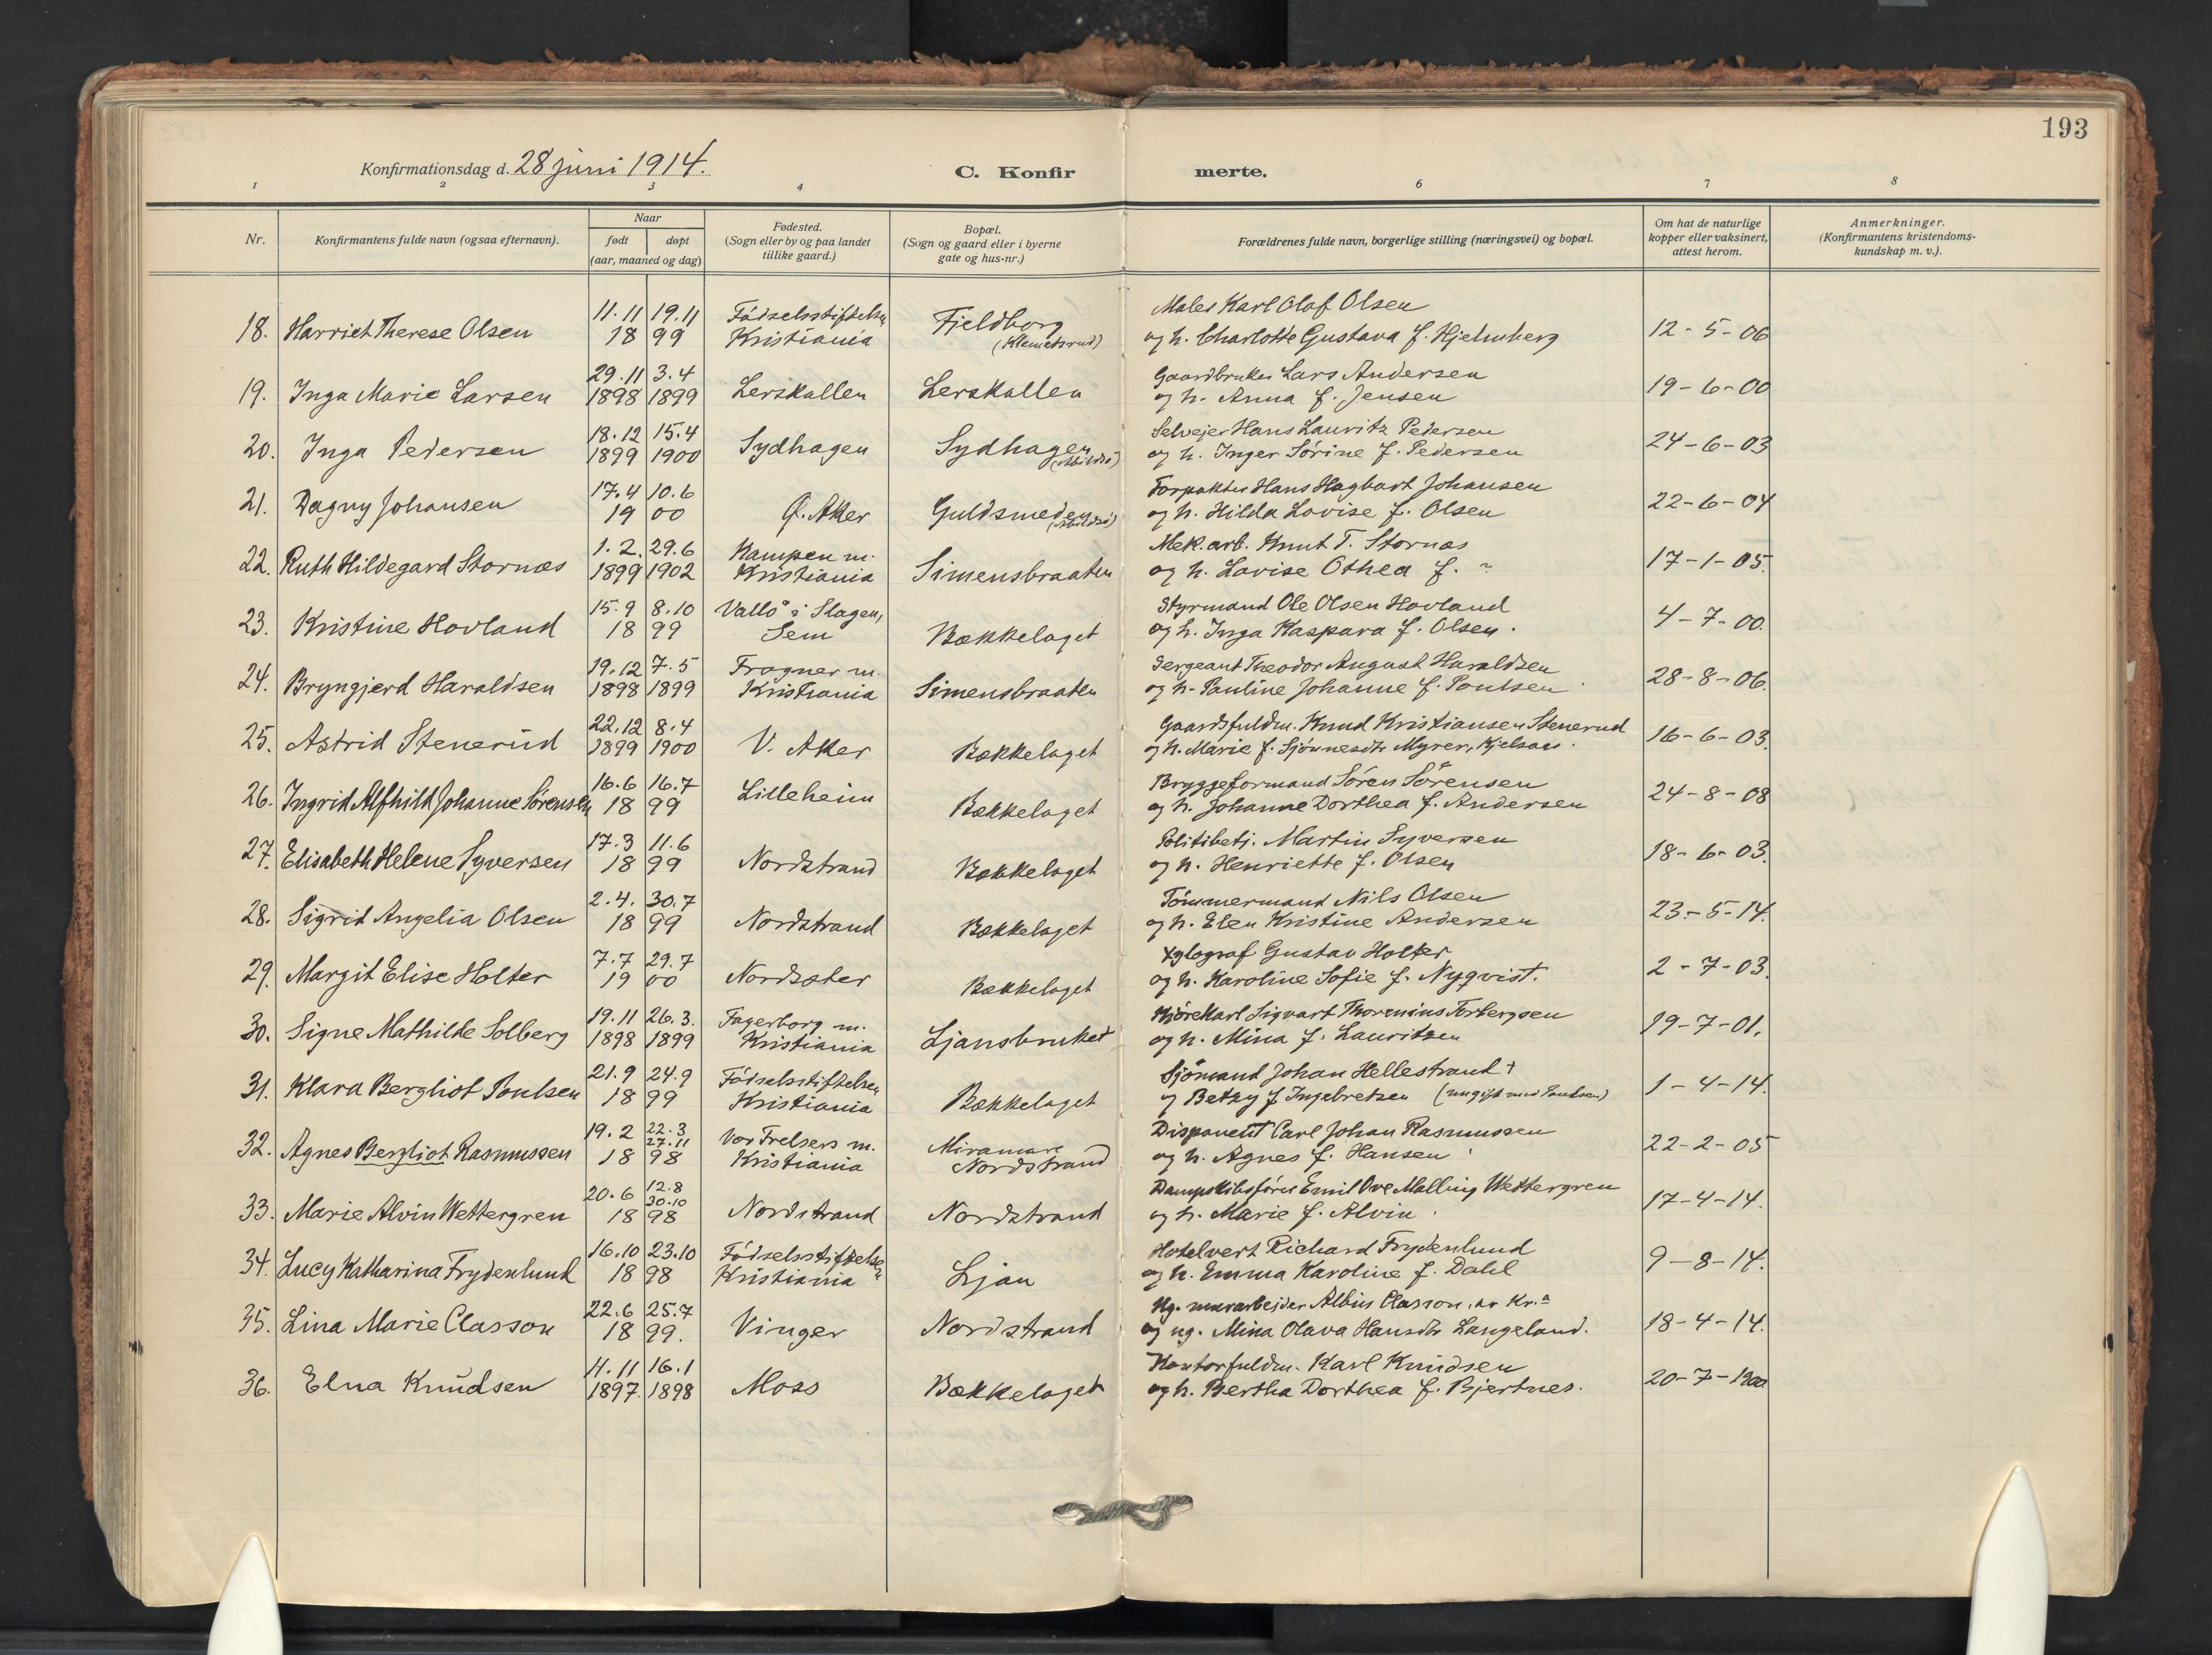 193
Konfirmationsdag d. 28 juni 1914.
C. Konfir merte.
1 2 3 4 6 7 8
Nr.
Konfirmantens fulde navn (ogsaa efternavn).
Naar
født døpt
(aar, maaned og dag)
Fødested.
(Sogn eller by og paa landet
tillike gaard.)
Bopæl.
(Sogn og gaard eller i byerne
gate og hus-nr.)
Forældrenes fulde navn, borgerlige stilling (næringsvei) og bopæl.
Om hat de naturlige
kopper eller vaksinert,
attest herom.
Anmerkninger.
(Konfirmantens kristendoms-
kundskap m. v.).
11.11 19.11 Fødselsstiftelsen Fjeldborg Maler Karl Olof Olsen
18. Harriet Therese Olsen 18 99 Kristiania (Klemetsrud) og h. Charlotte Gustava f. Hjelmberg 12-5-06
29.11 3.4 Gaardbruker Lars Andersen
19. Inga Marie Larsen 1898 1899 Lerskallen Lerskallen og h. Anna f. Jensen 19-6-00
18.12 15.4 Selveier Hans Lauritz Pedersen
20. Inga Pedersen 1899 1900 Sydhagen Sydhagen (Abildsø) og h. Inger Sørine f. Pedersen 24-6-03
17.4 10.6 Forpakter Hans Hagbart Johansen
21. Dagny Johansen 19 00 Ø. Aker Guldsmeden (Abildsø) og h. Hilda Lovise f. Olsen 22-6-04
1.2. 29.6 Kampen m. Mek. arb. Knut T. Stornæs
22. Ruth Hildegard Stornæs 1899 1902 Kristiania Simensbraaten og h. Lovise Othea f. ~ 17-1-05.
15.9 8.10 Vallø i Slagen, Styrmand Ole Olsen Hovland
23. Kristine Hovland 18 99 Sem Bækkelaget og h. Inga Kaspara f. Olsen. 4-7-00.
19.12 7.5 Frogner m. Sergeant Theodor August Haraldsen
24. Bryngjerd Haraldsen 1898 1899 Kristiania Simensbraaten og h. Pauline Johanne f. Poulsen 28-8-06.
22.12 8.4 Gaardsfuldm. Knud Kristiansen Stenerud
25. Astrid Stenerud 1899 1900 V. Aker Bækkelaget og h. Marie f. Myrer, Kjelsaas. 16-6-03.
16.6 16.7 Bryggeformand Søren Sørensen
26. Ingrid Alfhild Johanne Sørensen 18 99 Lilleheim Bækkelaget og h. Johanne Dorthea f. Andersen 24-8-08
17.3 11.6 Politibetj. Martin Syversen
27. Elisabeth Helene Syversen 18 99 Nordstrand Bækkelaget og h. Henriette f. Olsen 18-6-03.
2.4. 30.7 Tømmermand Nils Olsen
28. Sigrid Angelia Olsen 18 99 Nordstrand Bækkelaget og h. Elen Kristine Andersen 23-5-14.
7.7 29.7 Xylograf Gustav Holter
29. Margit Elise Holter 19 00 Nordsæter Bækkelaget og h. Karoline Sofie f. Nyqvist. 2-7-03.
19.11 26.3. Fagerborg m. Kjørekarl Sigvart Thorenius Torbergsen
30. Signe Mathilde Solberg 1898 1899 Kristiania Ljansbruket og h. Mina f. Lauritsen 19-7-01.
21.9 24.9 Fødselsstiftelsen Sjømand Johan Hellestrand +
31. Klara Bergliot Poulsen 18 99 Kristiania Bækkelaget og Betzy f Ingebretsen (nu gift med Poulsen) 1-4-14.
19.2 22.3 27.11 Vor Frelsers m. Miramare Disponent Carl Johan Rasmussen
32. Agnes Bergliot Rasmussen 18 98 Kristiania Nordstrand og h. Agnes f. Hansen 22-2-05
20.6 12.8 30.10 Dampskibsfører Emil Ove Malling Wettergren
33. Marie Alvin Wettergren 18 98 Nordstrand Nordstrand og h. Marie f. Alvin. 17-4-14.
16.10 23.10 Fødselsstiftelsen Hotelvert Richard Frydenlund
34. Lucy Katharina Frydenlund 18 98 Kristiania Ljan og h. Emma Karoline f. Dahl 9-8-14.
22.6 25.7 Ug. murarbeider Albin Classon, av Kr.a
35. Lina Marie Classon 18 99. Vinger Nordstrand og ug. Mina Olava Hansdtr Langeland. 18-4-14.
4.11 16.1 Kontorfuldm. Karl Knudsen
36. Elna Knudsen 1897. 1898 Moss Bækkelaget og h. Bertha Dorthea f. Bjertnes. 20-7-1900